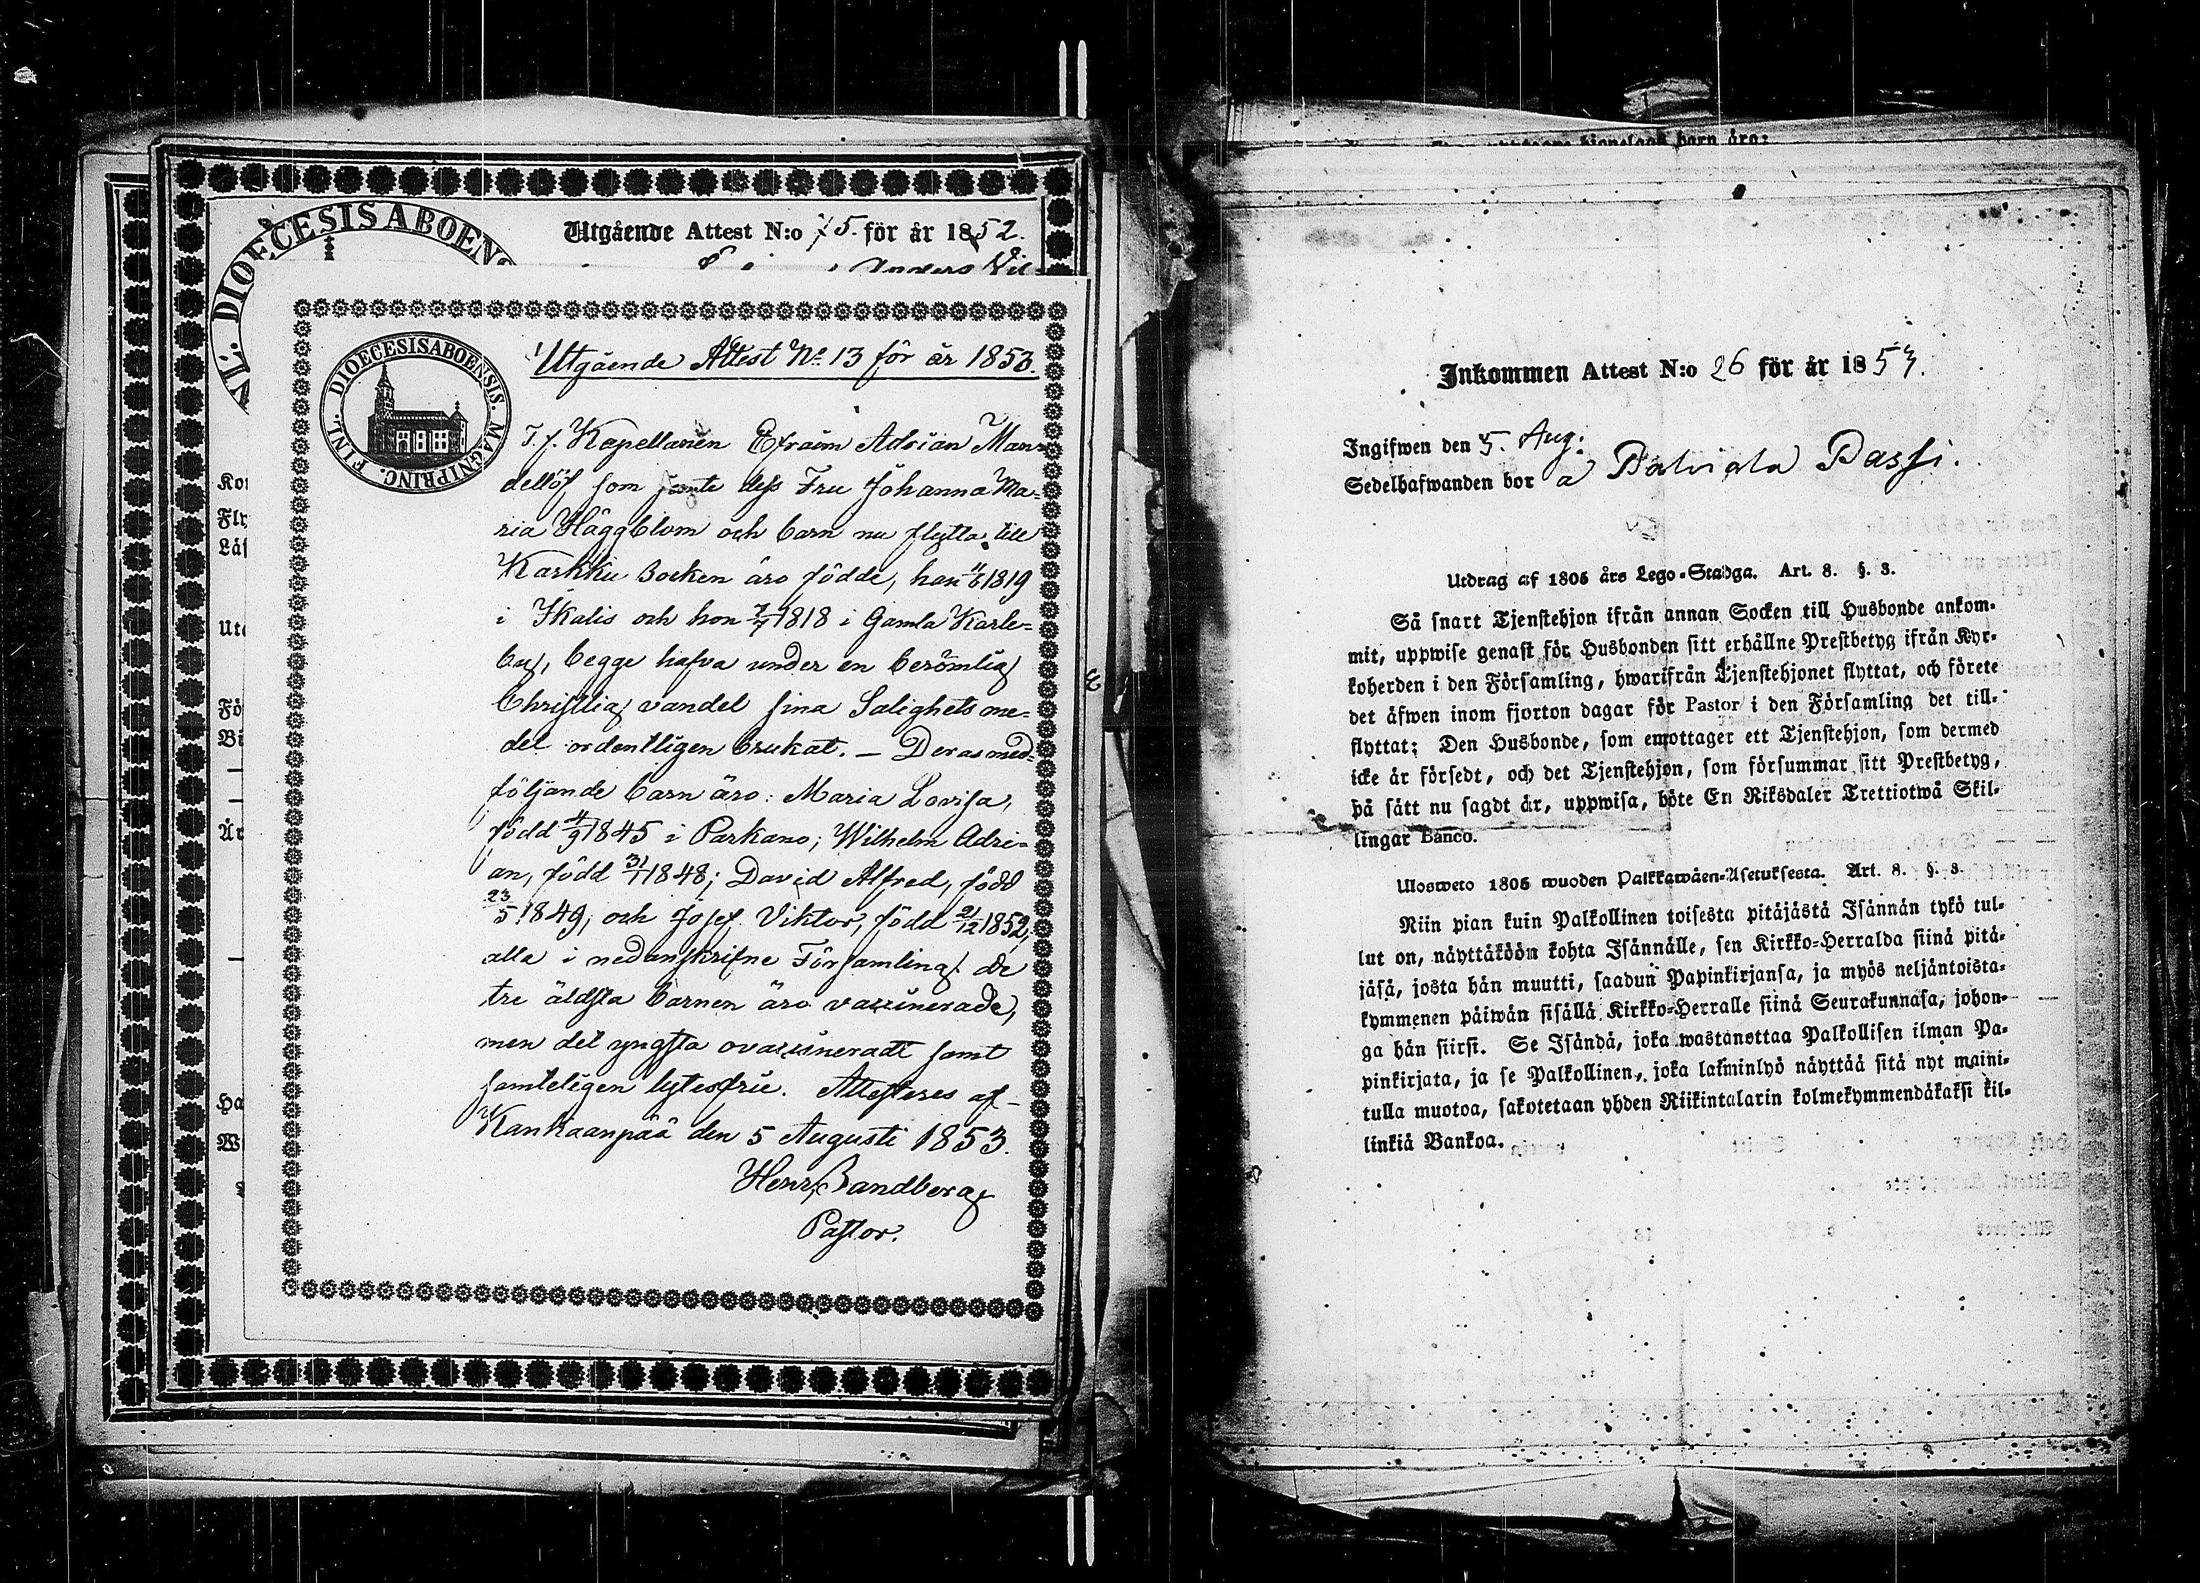 Utgående Attest N:o 75. för år 1852.
Anders Vil-
DIOECESIS ABOENS
VL. DIOECESIS ABOENS
Utgående Attest No 13 för år 1853.
DIOECESIS ABOENSIS. MAGNI PRINC. FINL.
T. f. Kapellanen Efraim Adrian Man-
dellöf som jämte dess Fru Johanna Ma-
ria Häggblom och barn nu flytta till
Karkku Socken äro födde, han 11/6 1819
i Ikalis och hon 7/7 1818 i Gamla Karle-
by, begge hafva under en berömlig
Christlig vandel sina Salighets me-
del ordentligen brukat. — Deras med-
följande barn äro: Maria Lovisa,
född 4/9 1845 i Parkano; Wilhelm Adri-
an, född 31/1 1848; David Alfred, född
23/5 1849, och Josef Viktor, född 21/12 1852,
alla i nedanskrifne Församling. De
tre äldsta barnen äro vaccinerade,
men det yngsta ovaccineradt samt
samteligen lytesfrie. Attesteres af
Kankaanpää den 5 Augusti 1853.
Henr. Sandberg
Pastor.
Kor
Fly
Läs
Utc
Fö
Bi
Är
Ha
W
barn äro:
Inkommen Attest N:o 26 för år 1853.
Ingifwen den 5. Aug:
Sedelhafwanden bor a Palviala Passi.
Utdrag af 1805 års Lego-Stadga. Art. 8. §. 3.
Så snart Tjenstehjon ifrån annan Socken till Husbonde ankom-
mit, uppwise genast för Husbonden sitt erhållne Prestbetyg ifrån Kyr-
koherden i den Församling, hwarifrån Tjenstehjonet flyttat, och förete
det äfwen inom fjorton dagar för Pastor i den Församling det till-
flyttat; Den Husbonde, som emottager ett Tjenstehjon, som dermed
icke är försedt, och det Tjenstehjon, som försummar sitt Prestbetyg,
på sätt nu sagdt är, uppwisa, böte En Riksdaler Trettiotwå Skil-
lingar Banco.
Ulosweto 1805 wuoden Palkkawäen-Asetuksesta. Art. 8. §. 3.
Niin pian kuin Palkollinen toisesta pitäjästä Isännän tykö tul-
lut on, näyttäköön kohta Isännälle, sen Kirkko-Herralda siinä pitä-
jäsä, josta hän muutti, saadun Papinkirjansa, ja myös neljäntoista-
kymmenen päiwän sisällä Kirkko-Herralle siinä Seurakunnasa, johon-
ga hän siirsi. Se Isändä, joka wastanottaa Palkollisen ilman Pa-
pinkirjata, ja se Palkollinen, joka laiminlyö näyttää sitä nyt maini-
tulla muotoa, sakotetaan yhden Riikintalarin kolmekymmendäkaksi kil-
linkiä Bankoa.